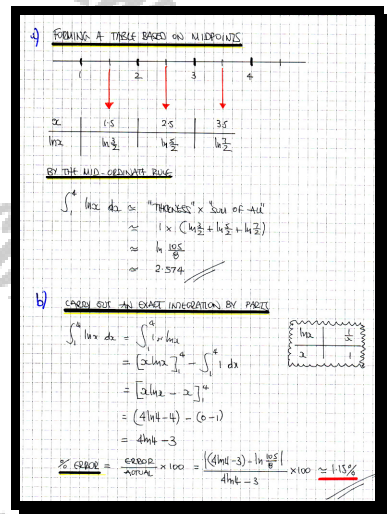 a) FORMING A TABLE BASED ON MIDPOINTS
1 2 3 4
x 1.5 2.5 3.5
lnx ln 3/2 ln 5/2 ln 7/2
BY THE MID-ORDINATE RULE
∫₁⁴ lnx dx ≈ "THICKNESS" × "SUM OF ALL"
≈ 1 × (ln 3/2 + ln 5/2 + ln 7/2)
≈ ln 105/8
≈ 2.574
b) CARRY OUT AN EXACT INTEGRATION BY PARTS
∫₁⁴ lnx dx = ∫₁⁴ 1×lnx
lnx 1/x
x 1
= [xlnx]₁⁴ - ∫₁⁴ 1 dx
= [xlnx - x]₁⁴
= (4ln4-4) - (0-1)
= 4ln4 - 3
% ERROR = ERROR/ACTUAL × 100 = |(4ln4-3) - ln 105/8| / 4ln4-3 ×100 ≈ 1.15%